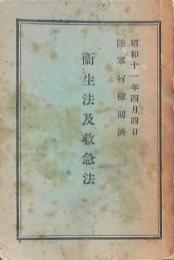 昭和十一年四月四日
陸軍省檢閲済
衞生法及救急法